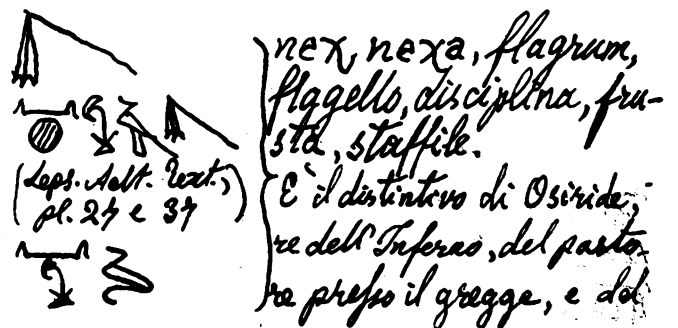 (Leps. Aelt. Text.,
pl. 27 e 37)
nex, nexa, flagrum,
flagello, disciplina, fru-
sta, staffile.
È il distintivo di Osiride,
re dell'Inferno, del pasto-
re presso il gregge, e del